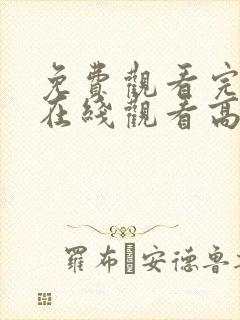 免費觀看完
在綫觀看高
羅布·安德魯